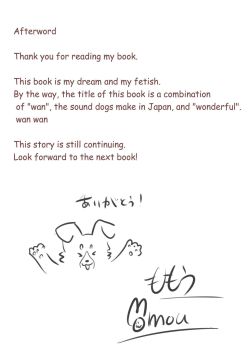 Afterword
Thank you for reading my book.
This book is my dream and my fetish.
By the way, the title of this book is a combination
of "wan", the sound dogs make in Japan, and "wonderful".
wan wan
This story is still continuing.
Look forward to the next book!
ありがとう!
ももう
Momou